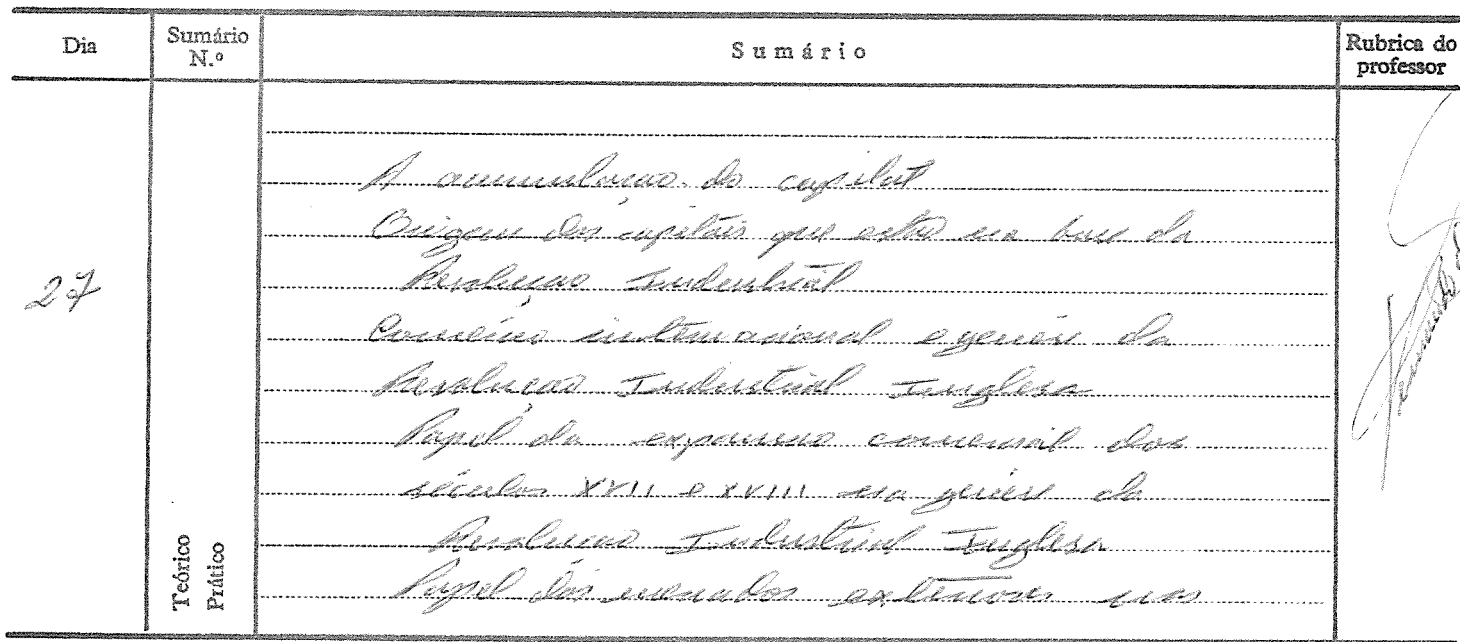 Dia
Sumário N.º
Sumário
Rubrica do professor
27
Teórico
Prático
A acumulação do capital
Origem dos capitais que estão na base da
Revolução Industrial
Comércio internacional e génese da
Revolução Industrial Inglesa
Papel da expansão comercial dos
séculos XVII e XVIII na génese da
Revolução Industrial Inglesa
Papel dos mercados exteriores nas